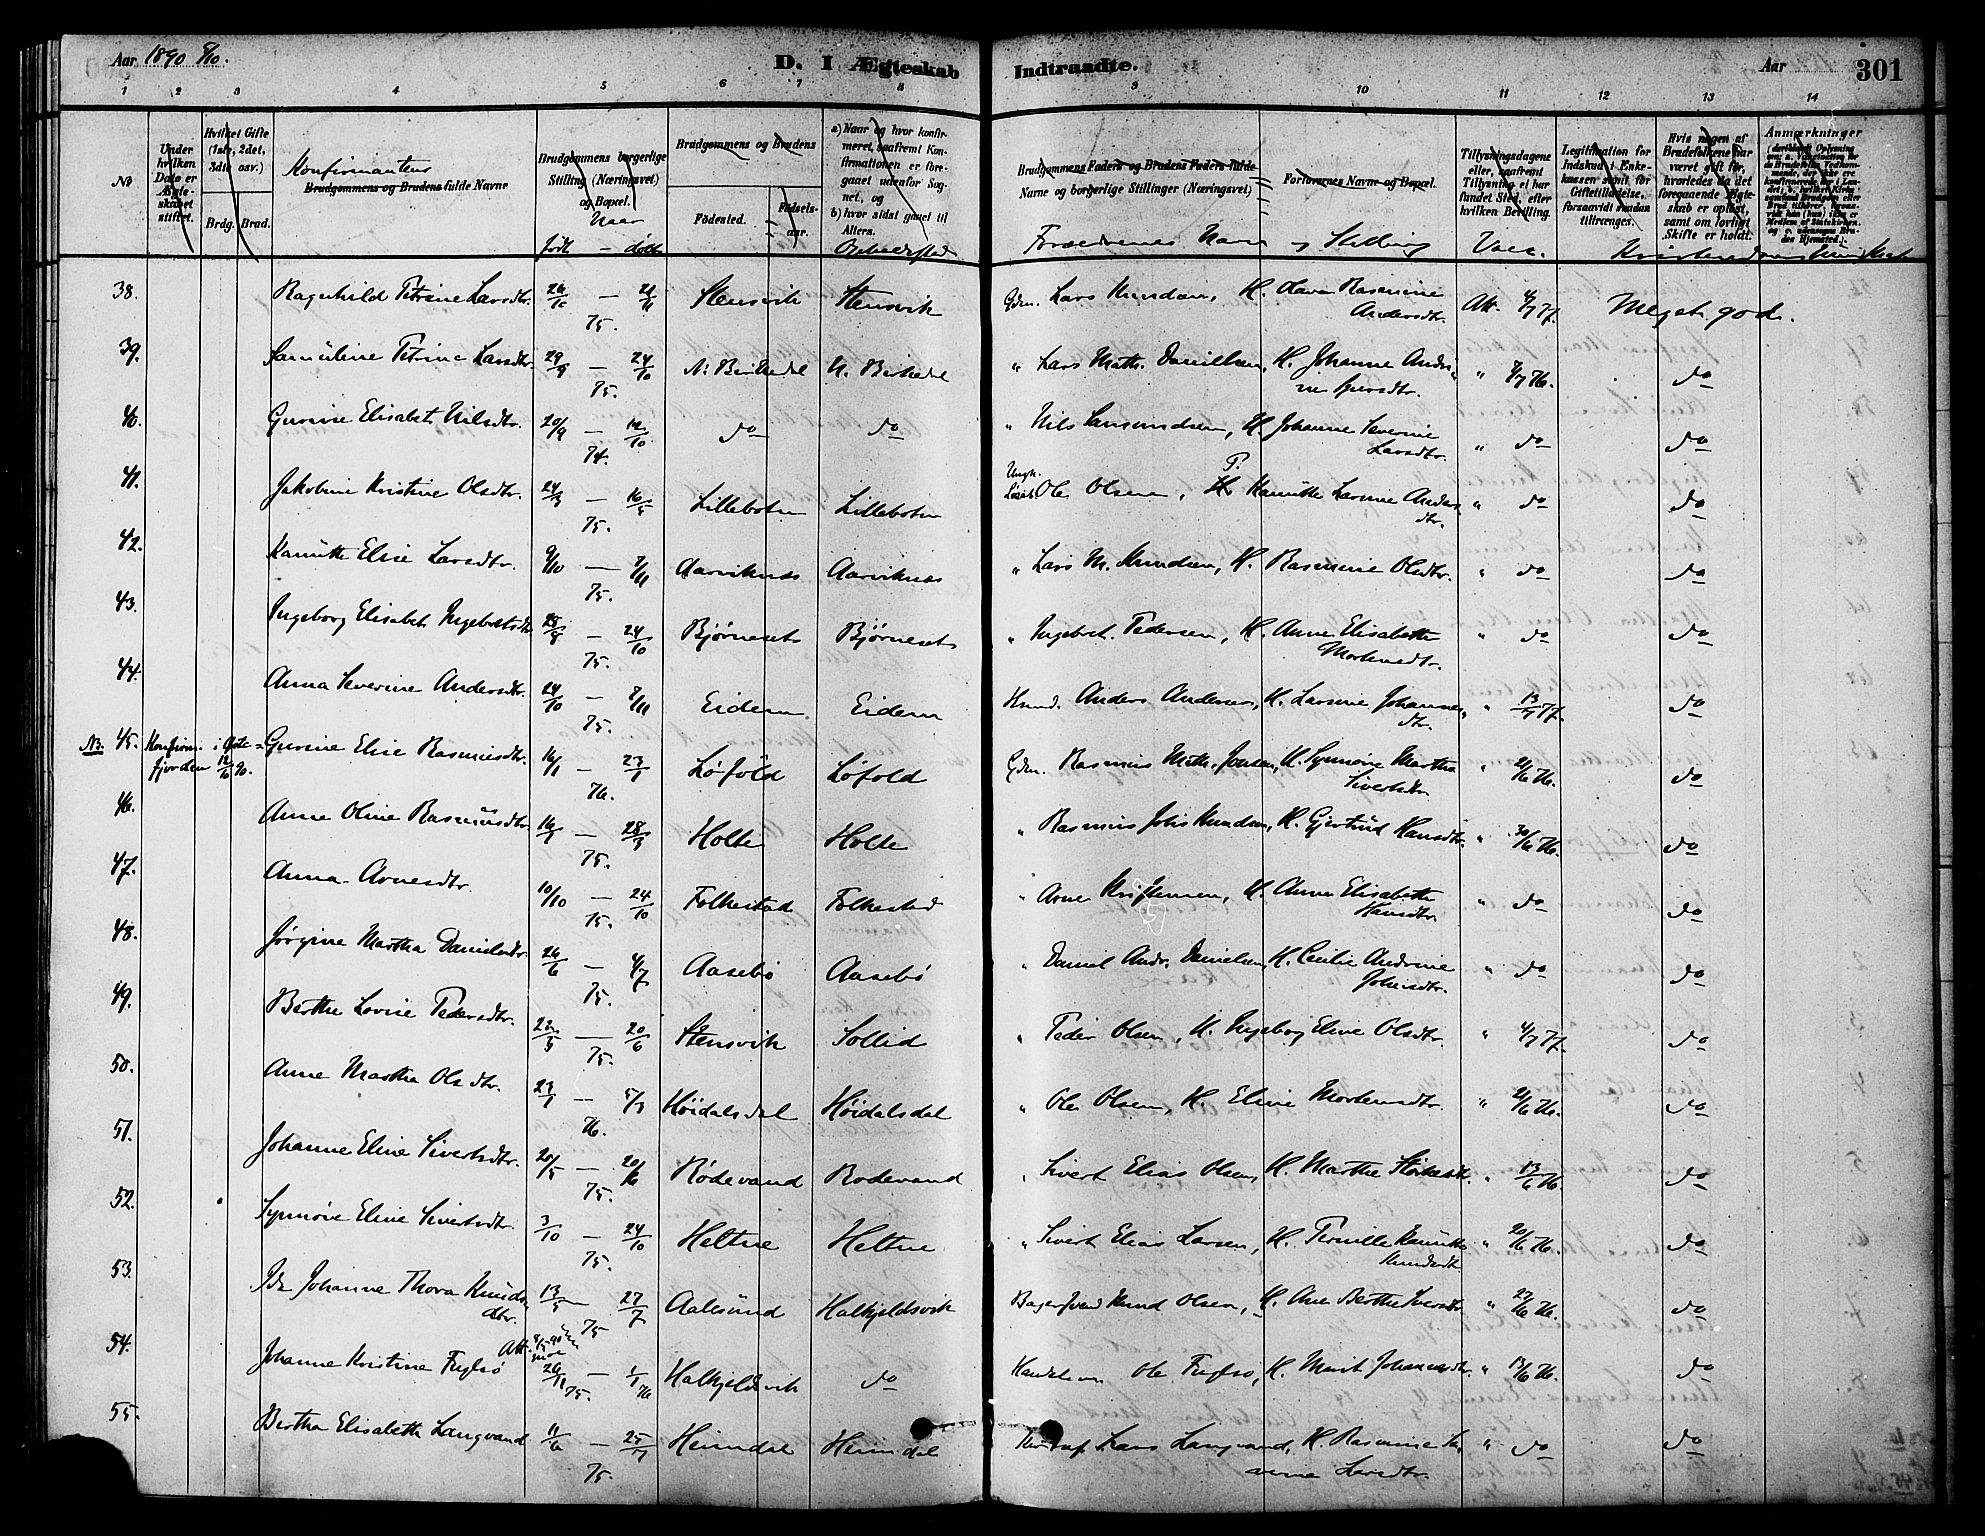 Aar 1890 5/10.
D. I Ægteskab Indtraadte.
Aar 301
1 2 3 4 5 6 7 8 9 10 11 12 13 14
No
Under hvilken Dato er Ægteskabet stiftet.
Hvilket Gifte (1ste, 2det, 3die osv.)
Brdg. Brud.
Konfirmantens
Brudgommens og Brudens fulde Navne
Brudgommens borgerlige Stilling (Næringsvei) og Bopæl.
Naar
født – døbt
Brudgommens og Brudens
Fødested. Fødsels-aar.
a) Naar og hvor konfirmeret, saafremt Konfirmationen er foregaaet udenfor Sognet, og
b) hvor sidst gaaet til Alters.
Opholdssted
Brudgommens Faders og Brudens Faders fulde Navne og borgerlige Stillinger (Næringsvei)
Forlovernes Navne og Bopæl.
Forældrenes Navn og Stilling
Tillysningsdagene eller, saafremt Tillysning ei har fundet Sted, efter hvilken Bevilling.
Vacc.
Legitimation for Indskud i Enkekassen samt for Giftetilladelse, forsaavidt saadan tiltrænges.
Hvis nogen af Brudefolkene har været gift før, hvorledes da det foregaaende Ægteskab er opløst, samt om lovligt Skifte er holdt.
Anmærkninger
Kristendomskundskab
38. Ragnhild Petrine Larsdtr. 26/10 – 21/11 75. Stensvik Stensvik Gdm. Lars Knudsen, H. Olava Rasmine Andersdtr. Att. 4/7 77. Meget god.
39. Samuline Petrine Larsdtr. 29/9 – 24/10 75. N. Birkedal N. Birkedal " Lars Math. Danielsen, H. Johanne Andrine Iversdtr. " 7/7 76. do
40. Gurine Elisabet Nilsdtr. 20/9 – 12/10 74. do do " Nils Samundsen, H. Johanne Severine Larsdtr. " do do
41. Jakobine Kristine Olsdtr. 24/3 – 16/5 75. Lillebotn Lillebotn Ungk. Løsk. Ole Olsen, P. Kanutte Lavine Andersdtr. " do do
42. Kanutte Elise Larsdtr. 9/10 – 7/11 75. Aarviknæs Aarviknæs " Lars M. Knudsen, H. Rasmine Olsdtr. " do do
43. Ingeborg Elisabet Ingebretsdtr. 28/8 – 24/10 75. Bjørneset Bjørneset " Ingebret. Pedersen, H. Anne Elisabeth Mortensdtr. " do do
44. Anna Severine Andersdtr. 24/10 – 7/11 75. Eidem Eidem Husmd. Anders Andersen, H. Larsine Johannesdtr. " 13/7 77. do
NB. 45. Konfirm. i Ørstefjorden 12/10 90. Gurine Elise Rasmusdtr. 16/1 – 23/1 76. Løfold Løfold Gdm. Rasmus Math. Jonsen, H. Synnøve Martha Sivertsdtr. " 21/6 76. do
46. Anne Oline Rasmusdtr. 16/7 – 28/3 75. Holte Holte " Rasmus Johs Knudsen, H. Gjertrud Hansdtr. " 30/6 76. do
47. Anna Arnesdtr. 10/10 – 24/10 75. Folkestad Folkestad " Arne Kristensen, H. Anne Elisabeth Hansdtr. " do do
48. Jørgine Martha Danielsdtr. 26/6 – 4/7 75. Aasebø Aasebø " Daniel Andr. Danielsen, H. Cecilie Andrine Johnsdtr. " do do
49. Berthe Lovise Pedersdtr. 22/5 – 20/6 75. Stensvik Sollid " Peder Olsen, H. Ingeborg Eline Olsdtr. " 4/7 77. do
50. Anne Martha Olsdtr. 23/1 – 5/3 76. Høidalsdal Høidalsdal " Ole Olsen, H. Eline Mortensdtr. " 21/6 76. do
51. Johanne Eline Sivertsdtr. 20/5 – 20/6 75. Rødevand Rodevand " Sivert Elias Olsen, H. Marthe " 13/6 76. do
52. Synnøve Eline Sivertsdtr. 3/10 – 24/10 75. Heltne Heltne " Sivert Elias Larsen, H. Pernille Kanutte Knudsdtr. " 20/6 76. do
53. Ida Johanne Thora Knudsdtr. 13/5 – 27/7 75 Aalesund Halkjeldsvik Bagersvend Knud Olsen, H. Ane Berthe Iversdtr. " 27/6 76. do
54. Johanne Kristine Fuglsø Att. 26/11 75. – 1/1 76 Halkjeldsvik do Handelsm. Ole Fuglsø, H. Marit Johannesdtr. " 13/6 76. do
55. Bertha Elisabeth Langvand 11/6 – 25/7 75. Heimdal Heimdal Lars Langvand, H. Rasmine Larsdtr. " do do